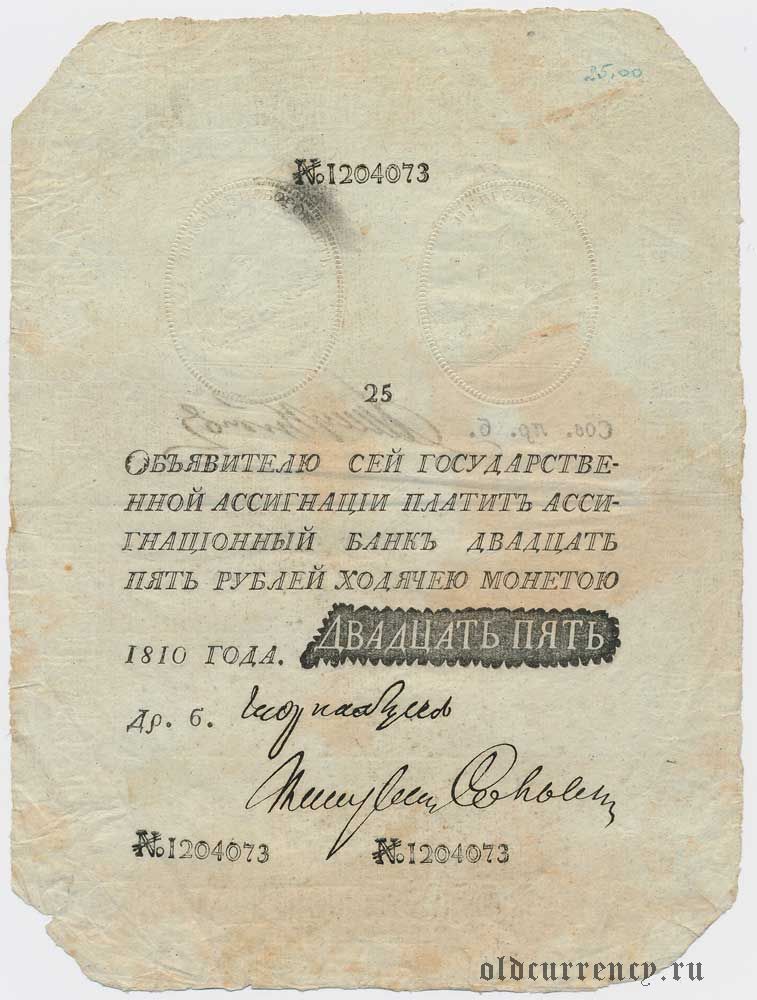 25,00
№1204073
25
Сов. пр. б.
ОБЪЯВИТЕЛЮ СЕЙ ГОСУДАРСТВЕ-
ННОЙ АССИГНАЦІИ ПЛАТИТЪ АССИ-
ГНАЦІОННЫЙ БАНКЪ ДВАДЦАТЬ
ПЯТЬ РУБЛЕЙ ХОДЯЧЕЮ МОНЕТОЮ
1810 ГОДА. ДВАДЦАТЬ ПЯТЬ
Др. б.
№1204073 №1204073
oldcurrency.ru